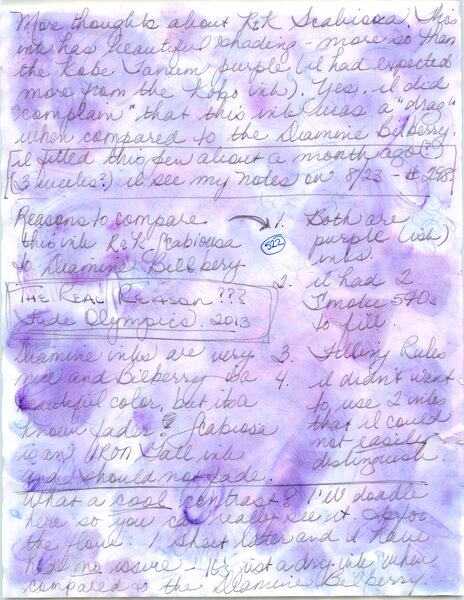 More thoughts about R&K Scabiosa. This
ink has beautiful shading - more so than
the Kobe Tansen purple (I had expected
more from the Kobo ink). Yes, I did
"complain" that this ink was a "drag"
when compared to the Diamine Bilberry.
I filled this pen about a month ago(?)
(3 weeks?) I'll see my notes on 8/23 - # 298
Reasons to compare
this ink R&K Scabiosa
to Diamine Bilberry
THE REAL REASON ???
Fade Olympics. 2013
Diamine inks are very
nice and Bilberry is a
beautiful color, but its a
known fader? Scabiosa
is an IRON Gall ink
and should not fade.
1. Both are
purple (ish)
inks.
522
2. I had 2
Snoke 540s
to fill
3. Filling Rules
4. I didn't want
to use 2 inks
that I could
not easily
distinguish.
What a cool contrast? I'll doodle
here so you can really see it. As for
the flow. I short later and I have
had no issure - It's just a dry ink when
compared to the Diamine Bilberry.